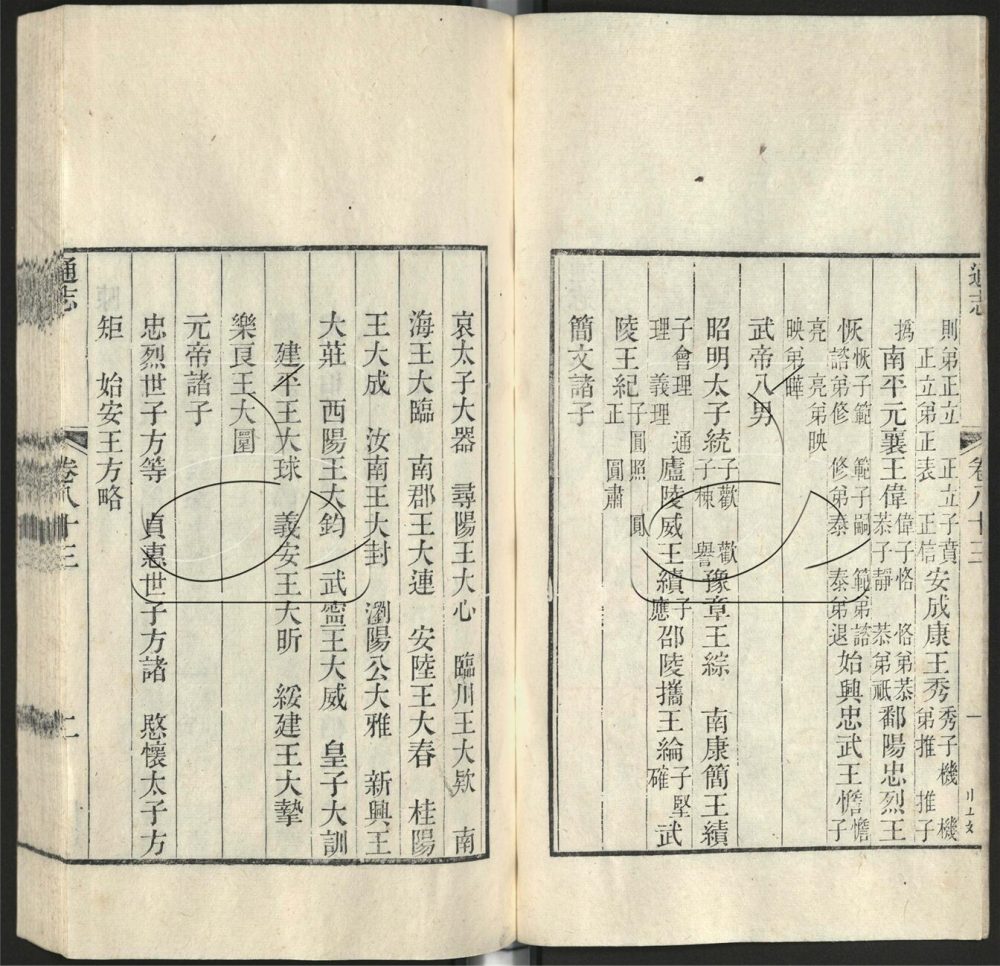 通志 卷八十三 一
則弟正立 正立子賁 正立弟正表 正信 安成康王秀 秀子機 機弟推 推子
撝 南平元襄王偉 偉子恪 恪弟恭 恭子靜 恭弟祗 鄱陽忠烈王
恢 恢子範 範子嗣 範弟諮 諮弟修 修弟泰 泰弟退 始興忠武王憺 憺子
亮 亮弟映 映弟曄
武帝八男
昭明太子統 子歡 歡子棟 譽 豫章王綜 南康簡王績
子會理 通理 義理 廬陵威王續 子應 邵陵攜王綸 子堅 確 武
陵王紀 子圓照 圓正 圓肅
簡文諸子
哀太子大器 尋陽王大心 臨川王大欵 南
海王大臨 南郡王大連 安陸王大春 桂陽
王大成 汝南王大封 瀏陽公大雅 新興王
大莊 西陽王大鈞 武寧王大威 皇子大訓
建平王大球 義安王大昕 綏建王大摯
樂良王大圜
元帝諸子
忠烈世子方等 貞惠世子方諸 愍懷太子方
矩 始安王方略
通志 卷八十三 二